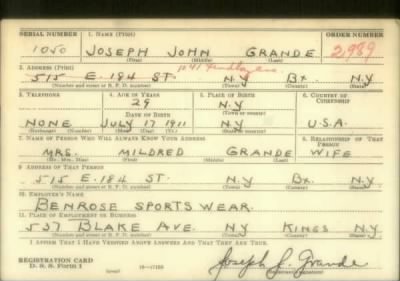 SERIAL NUMBER 1. NAME (Print) ORDER NUMBER
1050 JOSEPH JOHN GRANDE 2989
(First) (Middle) (Last)
2. ADDRESS (Print) 1041
515 E. 184 ST. N.Y Bx. N.Y
(Number and street or R. F. D. number) (Town) (County) (State)
3. TELEPHONE 4. AGE IN YEARS 5. PLACE OF BIRTH 6. COUNTRY OF CITIZENSHIP
29 N.Y
DATE OF BIRTH (Town or county)
NONE JULY 17 1911 N.Y U.S.A.
(Exchange) (Number) (Mo.) (Day) (Yr.) (State or country)
7. NAME OF PERSON WHO WILL ALWAYS KNOW YOUR ADDRESS 8. RELATIONSHIP OF THAT PERSON
MRS. MILDRED GRANDE WIFE
(Mr., Mrs., Miss) (First) (Middle) (Last)
9. ADDRESS OF THAT PERSON
515 E. 184 ST. N.Y Bx. N.Y
(Number and street or R. F. D. number) (Town) (County) (State)
10. EMPLOYER'S NAME
BENROSE SPORTS WEAR
11. PLACE OF EMPLOYMENT OR BUSINESS
537 BLAKE AVE. NY KINGS N.Y
(Number and street or R. F. D. number) (Town) (County) (State)
I AFFIRM THAT I HAVE VERIFIED ABOVE ANSWERS AND THAT THEY ARE TRUE.
REGISTRATION CARD
D. S. S. Form 1 (over) 16—17105 Joseph J. Grande